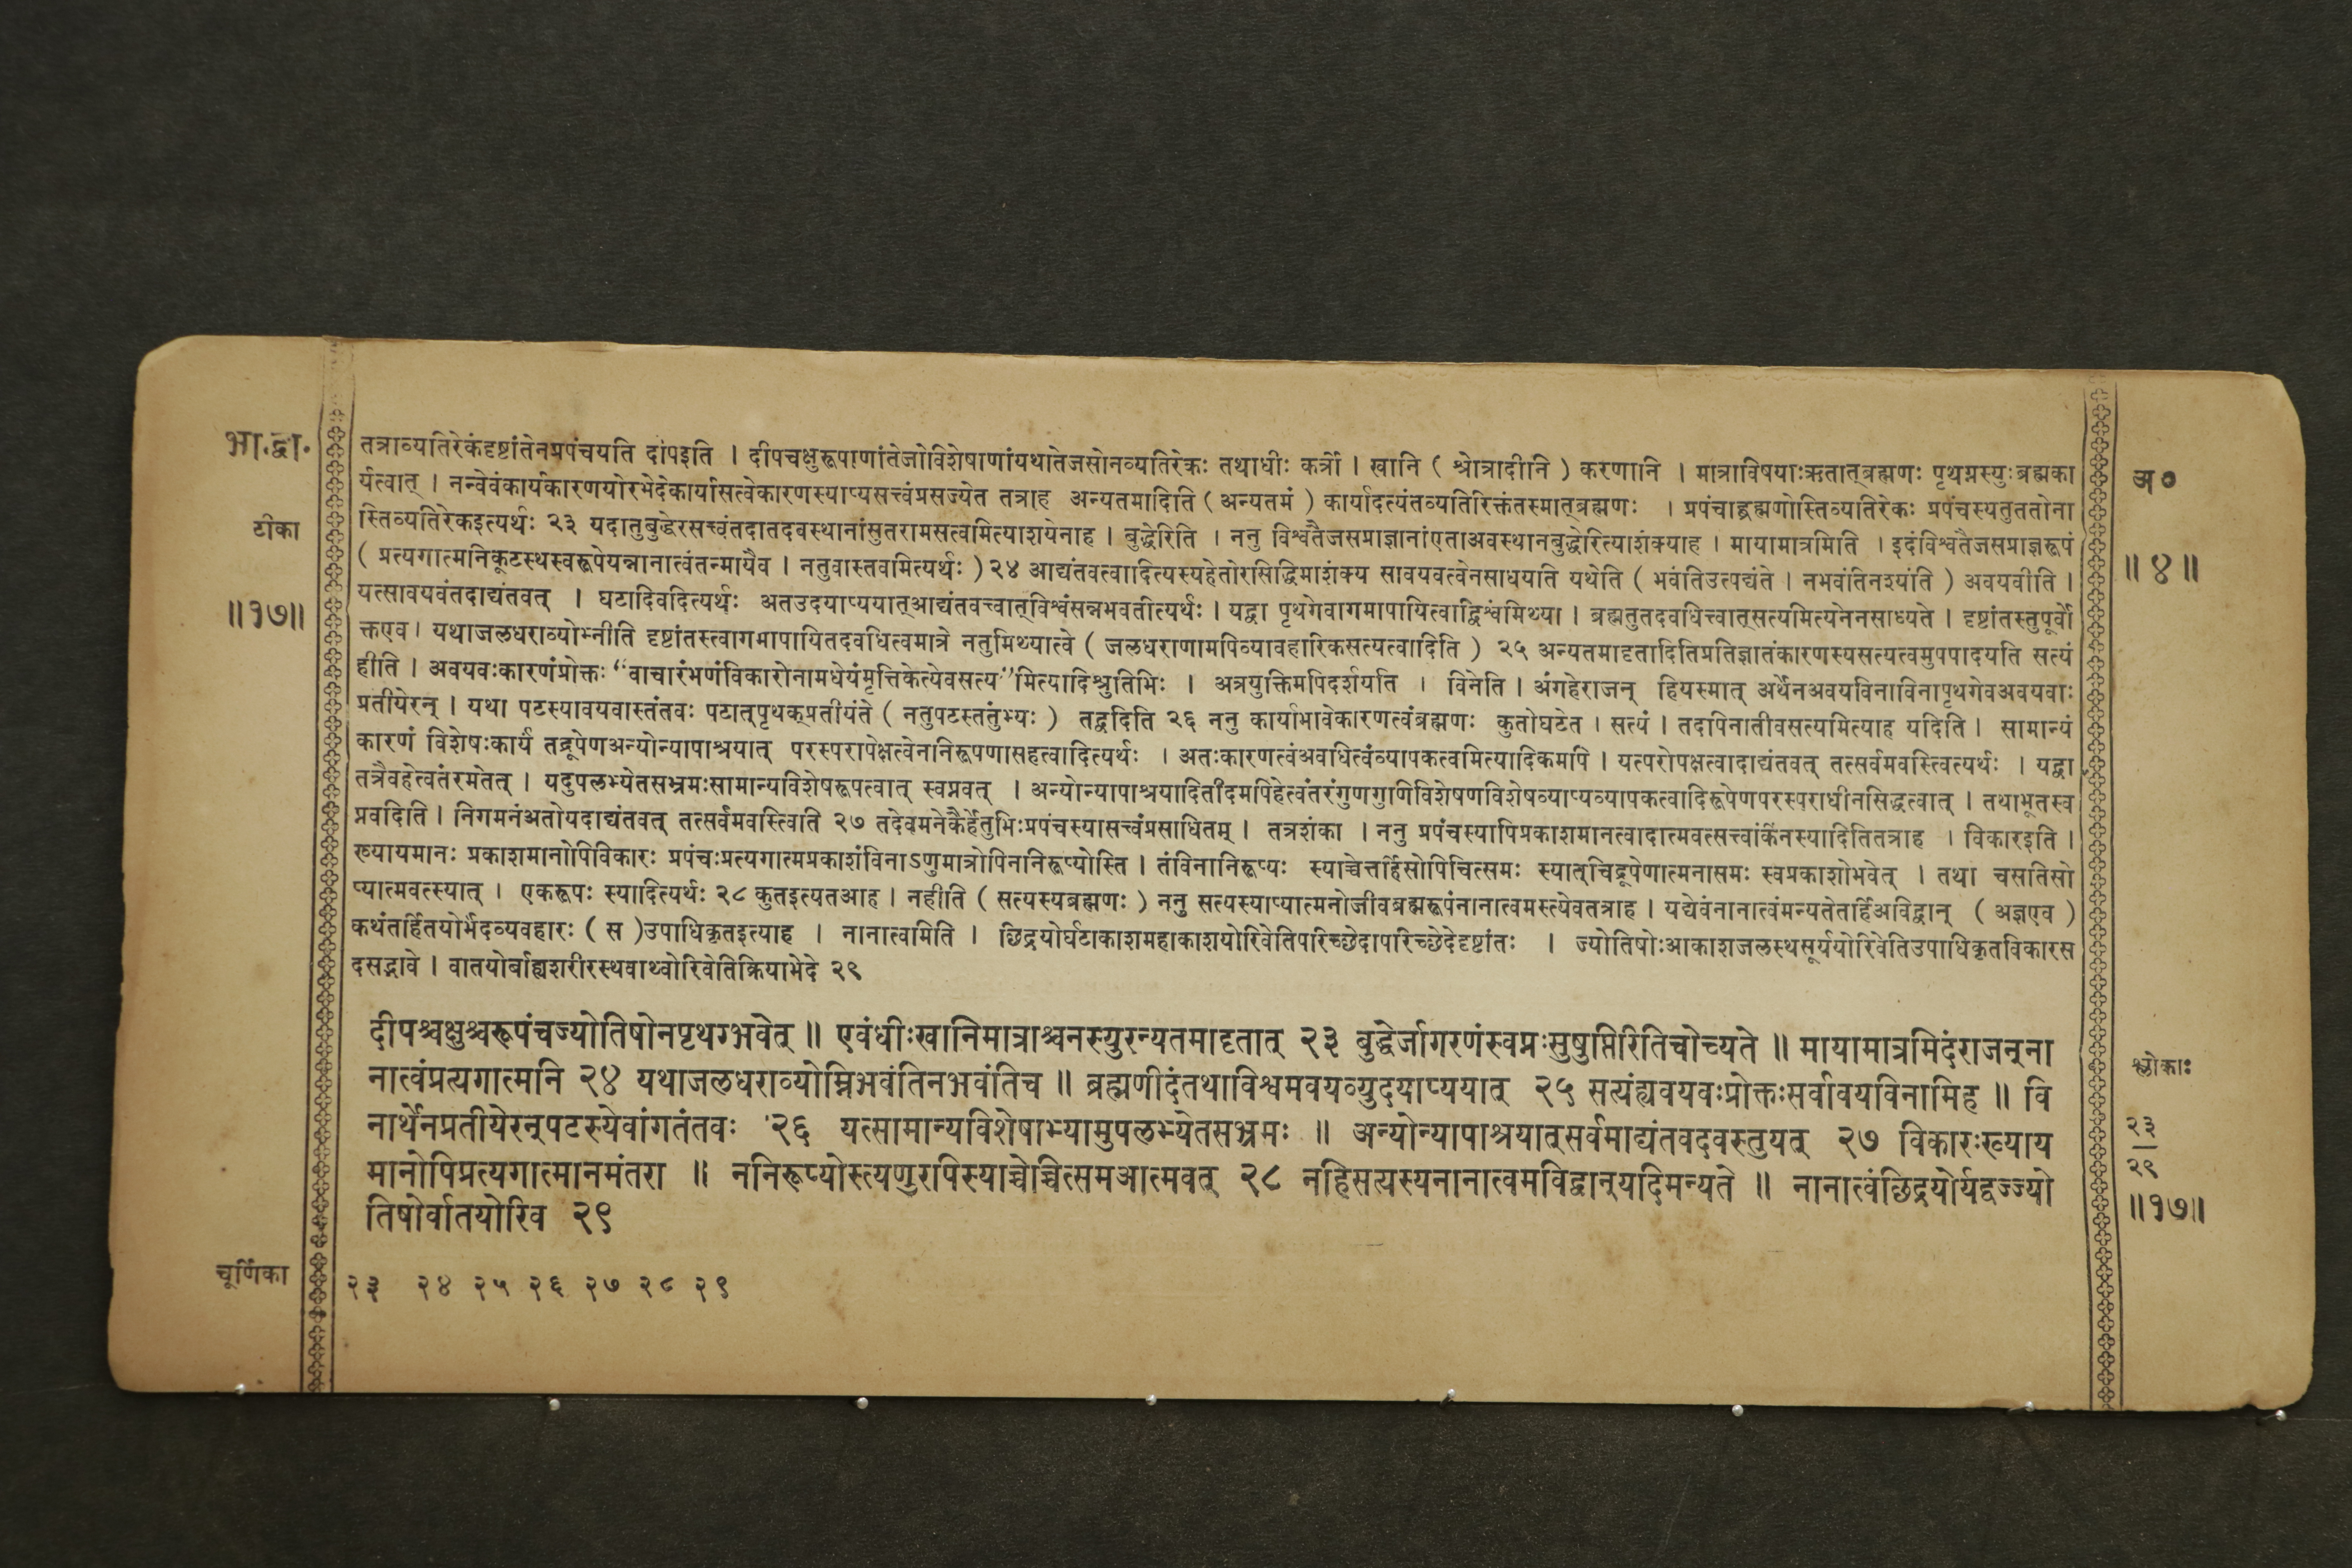 भा.द्वा.
टीका
॥१७॥
तत्राव्यतिरेकंदृष्टांतेनप्रपंचयति दीपइति । दीपचक्षुरूपाणांतेजोविशेषाणांयथातेजसोनव्यतिरेकः तथाधीः कर्त्री । खानि ( श्रोत्रादीनि ) करणानि । मात्राविषयाःऋतात्ब्रह्मणः पृथग्नस्युःब्रह्मका
र्यत्वात् । नन्वेवंकार्यकारणयोरभेदेकार्यासत्वेकारणस्याप्यसत्त्वंप्रसज्येत तत्राह अन्यतमादिति ( अन्यतमं ) कार्यादत्यंतव्यतिरिक्तंतस्मात्ब्रह्मणः । प्रपंचाद्ब्रह्मणोस्तिव्यतिरेकः प्रपंचस्यतुततोना
स्तिव्यतिरेकइत्यर्थः २३ यदातुबुद्धेरसत्त्वंतदातदवस्थानांसुतरामसत्वमित्याशयेनाह । बुद्धेरिति । ननु विश्वतैजसप्राज्ञानांएताअवस्थानबुद्धेरित्याशंक्याह । मायामात्रमिति । इदंविश्वतैजसप्राज्ञरूपं
( प्रत्यगात्मनिकूटस्थस्वरूपेयन्नानात्वंतन्मायैव । नतुवास्तवमित्यर्थः ) २४ आद्यंतवत्वादित्यस्यहेतोरसिद्धिमाशंक्य सावयवत्वेनसाधयति यथेति ( भवंतिउत्पद्यंते । नभवंतिनश्यंति ) अवयवीति ।
यत्सावयवंतदाद्यंतवत् । घटादिवदित्यर्थः अतउदयाप्ययात्आद्यंतवत्त्वात्विश्वंसन्नभवतीत्यर्थः । यद्वा पृथगेवागमापायित्वाद्विश्वंमिथ्या । ब्रह्मतुतदवधित्त्वात्सत्यमित्यनेनसाध्यते । दृष्टांतस्तुपूर्वो
क्तएव । यथाजलधराव्योम्नीति दृष्टांतस्त्वागमापायितदवधित्वमात्रे नतुमिथ्यात्वे ( जलधराणामपिव्यावहारिकसत्यत्वादिति ) २५ अन्यतमादृतादितिप्रतिज्ञातंकारणस्यसत्यत्वमुपपादयति सत्यं
हीति । अवयवःकारणंप्रोक्तः “वाचारंभणंविकारोनामधेयंमृत्तिकेत्येवसत्य”मित्यादिश्रुतिभिः । अत्रयुक्तिमपिदर्शयति । विनेति । अंगहेराजन् हियस्मात् अर्थेनअवयविनाविनापृथगेवअवयवाः
प्रतीयेरन् । यथा पटस्यावयवास्तंतवः पटात्पृथक्प्रतीयंते ( नतुपटस्तंतुभ्यः ) तद्वदिति २६ ननु कार्याभावेकारणत्वंब्रह्मणः कुतोघटेत । सत्यं । तदापिनातीवसत्यमित्याह यदिति । सामान्यं
कारणं विशेषःकार्यं तद्रूपेणअन्योन्यापाश्रयात् परस्परापेक्षत्वेनानिरूपणासहत्वादित्यर्थः । अतःकारणत्वंअवधित्वंव्यापकत्वमित्यादिकमपि । यत्परोपक्षत्वादाद्यंतवत् तत्सर्वमवस्त्वित्यर्थः । यद्वा
तत्रैवहेत्वंतरमतेत् । यदुपलभ्येतसभ्रमःसामान्यविशेषरूपत्वात् स्वप्नवत् । अन्योन्यापाश्रयादितीदमपिहेत्वंतरंगुणगुणिविशेषणविशेषव्याप्यव्यापकत्वादिरूपेणपरस्पराधीनसिद्धत्वात् । तथाभूतस्व
प्नवदिति । निगमनंअतोयदाद्यंतवत् तत्सर्वमवस्त्विति २७ तदेवमनेकैर्हेतुभिःप्रपंचस्यासत्त्वंप्रसाधितम् । तत्रशंका । ननु प्रपंचस्यापिप्रकाशमानत्वादात्मवत्सत्त्वांकिंनस्यादितितत्राह । विकारइति ।
ख्यायमानः प्रकाशमानोपिविकारः प्रपंचःप्रत्यगात्मप्रकाशंविनाऽणुमात्रोपिनानिरूप्योस्ति । तंविनानिरूप्यः स्याच्चेत्तर्हिसोपिचित्समः स्यात्चिद्रूपेणात्मनासमः स्वप्रकाशोभवेत् । तथा चसतिसो
प्यात्मवत्स्यात् । एकरूपः स्यादित्यर्थः २८ कुतइत्यतआह । नहीति ( सत्यस्यब्रह्मणः ) ननु सत्यस्याप्यात्मनोजीवब्रह्मरूपंनानात्वमस्त्येवतत्राह । यद्येवंनानात्वंमन्यतेतर्हिअविद्वान् ( अज्ञएव )
कथंतर्हितयोर्भेदव्यवहारः ( स )उपाधिकृतइत्याह । नानात्वमिति । छिद्रयोर्घटाकाशमहाकाशयोरिवेतिपरिच्छेदापरिच्छेदेदृष्टांतः । ज्योतिषोःआकाशजलस्थसूर्ययोरिवेतिउपाधिकृतविकारस
दसद्भावे । वातयोर्बाह्यशरीरस्थवाय्वोरिवेतिक्रियाभेदे २९
दीपश्चक्षुश्चरूपंचज्योतिषोनपृथग्भवेत् ॥ एवंधीःखानिमात्राश्चनस्युरन्यतमादृतात् २३ बुद्धेर्जागरणंस्वप्नःसुषुप्तिरितिचोच्यते ॥ मायामात्रमिदंराजन्ना
नात्वंप्रत्यगात्मनि २४ यथाजलधराव्योम्निभवंतिनभवंतिच ॥ ब्रह्मणीदंतथाविश्वमवयव्युदयाप्ययात् २५ सत्यंह्यवयवःप्रोक्तःसर्वावयविनामिह ॥ वि
नार्थेनप्रतीयेरन्पटस्येवांगतंतवः २६ यत्सामान्यविशेषाभ्यामुपलभ्येतसभ्रमः ॥ अन्योन्यापाश्रयात्सर्वमाद्यंतवदवस्तुयत् २७ विकारःख्याय
मानोपिप्रत्यगात्मानमंतरा ॥ ननिरूप्योस्त्यणुरपिस्याच्चेच्चित्समआत्मवत् २८ नहिसत्यस्यनानात्वमविद्वान्यदिमन्यते ॥ नानात्वंछिद्रयोर्यद्वज्ज्यो
तिषोर्वातयोरिव २९
चूर्णिका
२३ २४ २५ २६ २७ २८ २९
अ०
॥४॥
श्लोकाः
२३
२९
॥१७॥